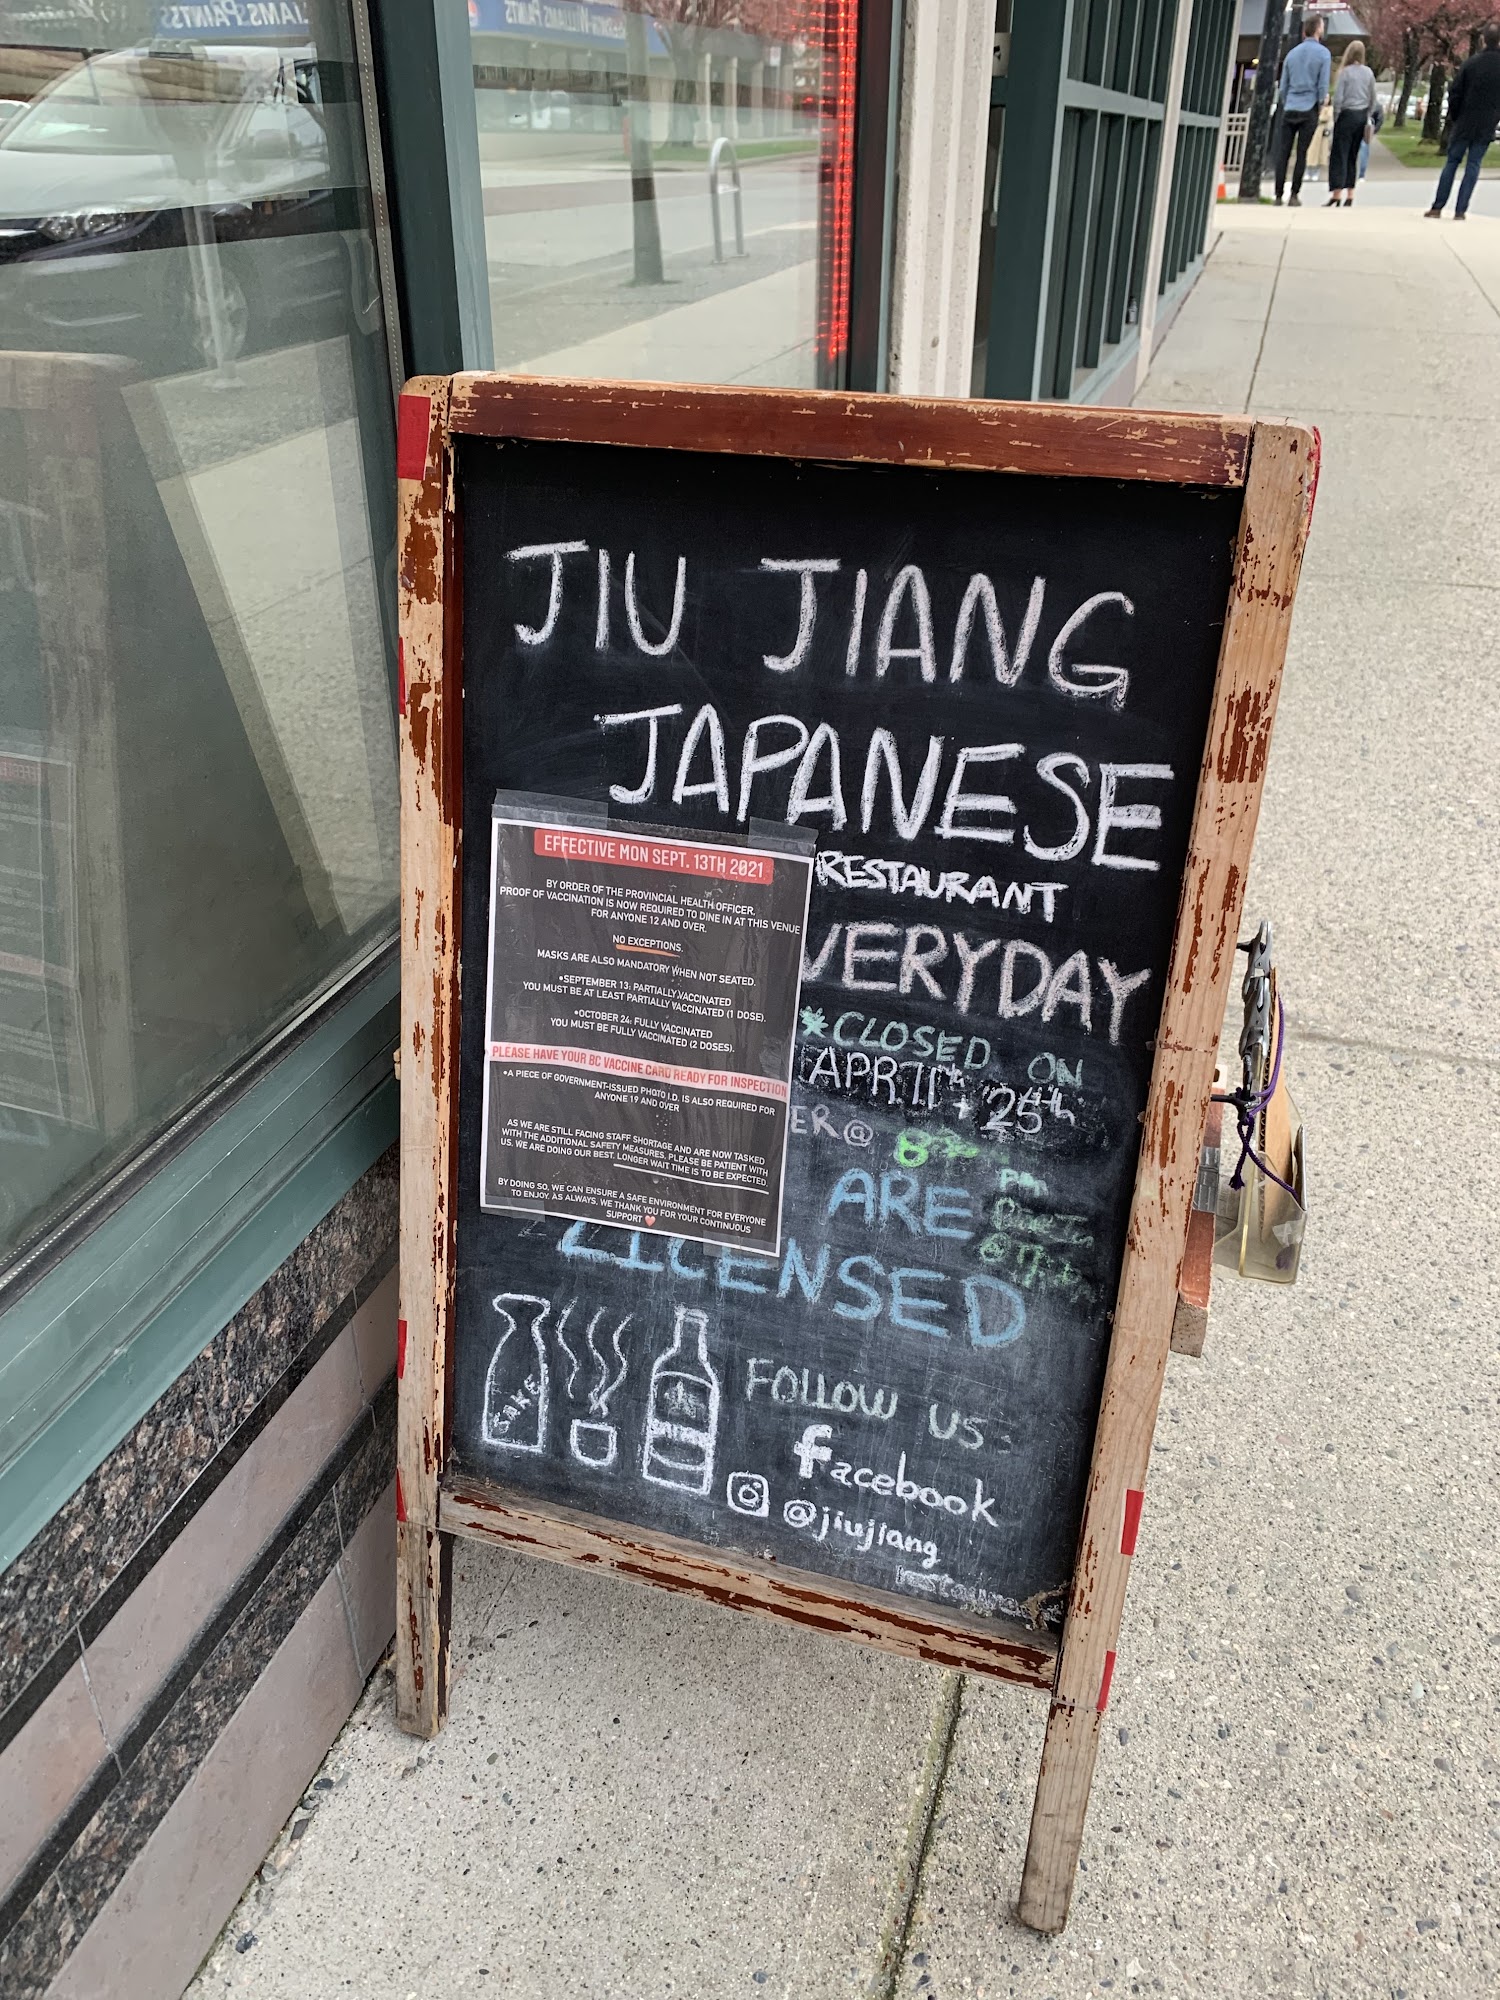 JIU JIANG
JAPANESE
RESTAURANT
VERYDAY
*CLOSED ON
APR 11th + 25th
ER@ 8
pm
ARE
LICENSED
EFFECTIVE MON SEPT. 13TH 2021
BY ORDER OF THE PROVINCIAL HEALTH OFFICER.
PROOF OF VACCINATION IS NOW REQUIRED TO DINE IN AT THIS VENUE
FOR ANYONE 12 AND OVER.
NO EXCEPTIONS.
MASKS ARE ALSO MANDATORY WHEN NOT SEATED.
•SEPTEMBER 13: PARTIALLY VACCINATED
YOU MUST BE AT LEAST PARTIALLY VACCINATED (1 DOSE).
•OCTOBER 24: FULLY VACCINATED
YOU MUST BE FULLY VACCINATED (2 DOSES).
PLEASE HAVE YOUR BC VACCINE CARD READY FOR INSPECTION
•A PIECE OF GOVERNMENT-ISSUED PHOTO I.D. IS ALSO REQUIRED FOR
ANYONE 19 AND OVER
AS WE ARE STILL FACING STAFF SHORTAGE AND ARE NOW TASKED
WITH THE ADDITIONAL SAFETY MEASURES, PLEASE BE PATIENT WITH
US. WE ARE DOING OUR BEST. LONGER WAIT TIME IS TO BE EXPECTED.
BY DOING SO, WE CAN ENSURE A SAFE ENVIRONMENT FOR EVERYONE
TO ENJOY. AS ALWAYS, WE THANK YOU FOR YOUR CONTINUOUS
SUPPORT ❤
SAKE
FOLLOW US
facebook
@jiujiang